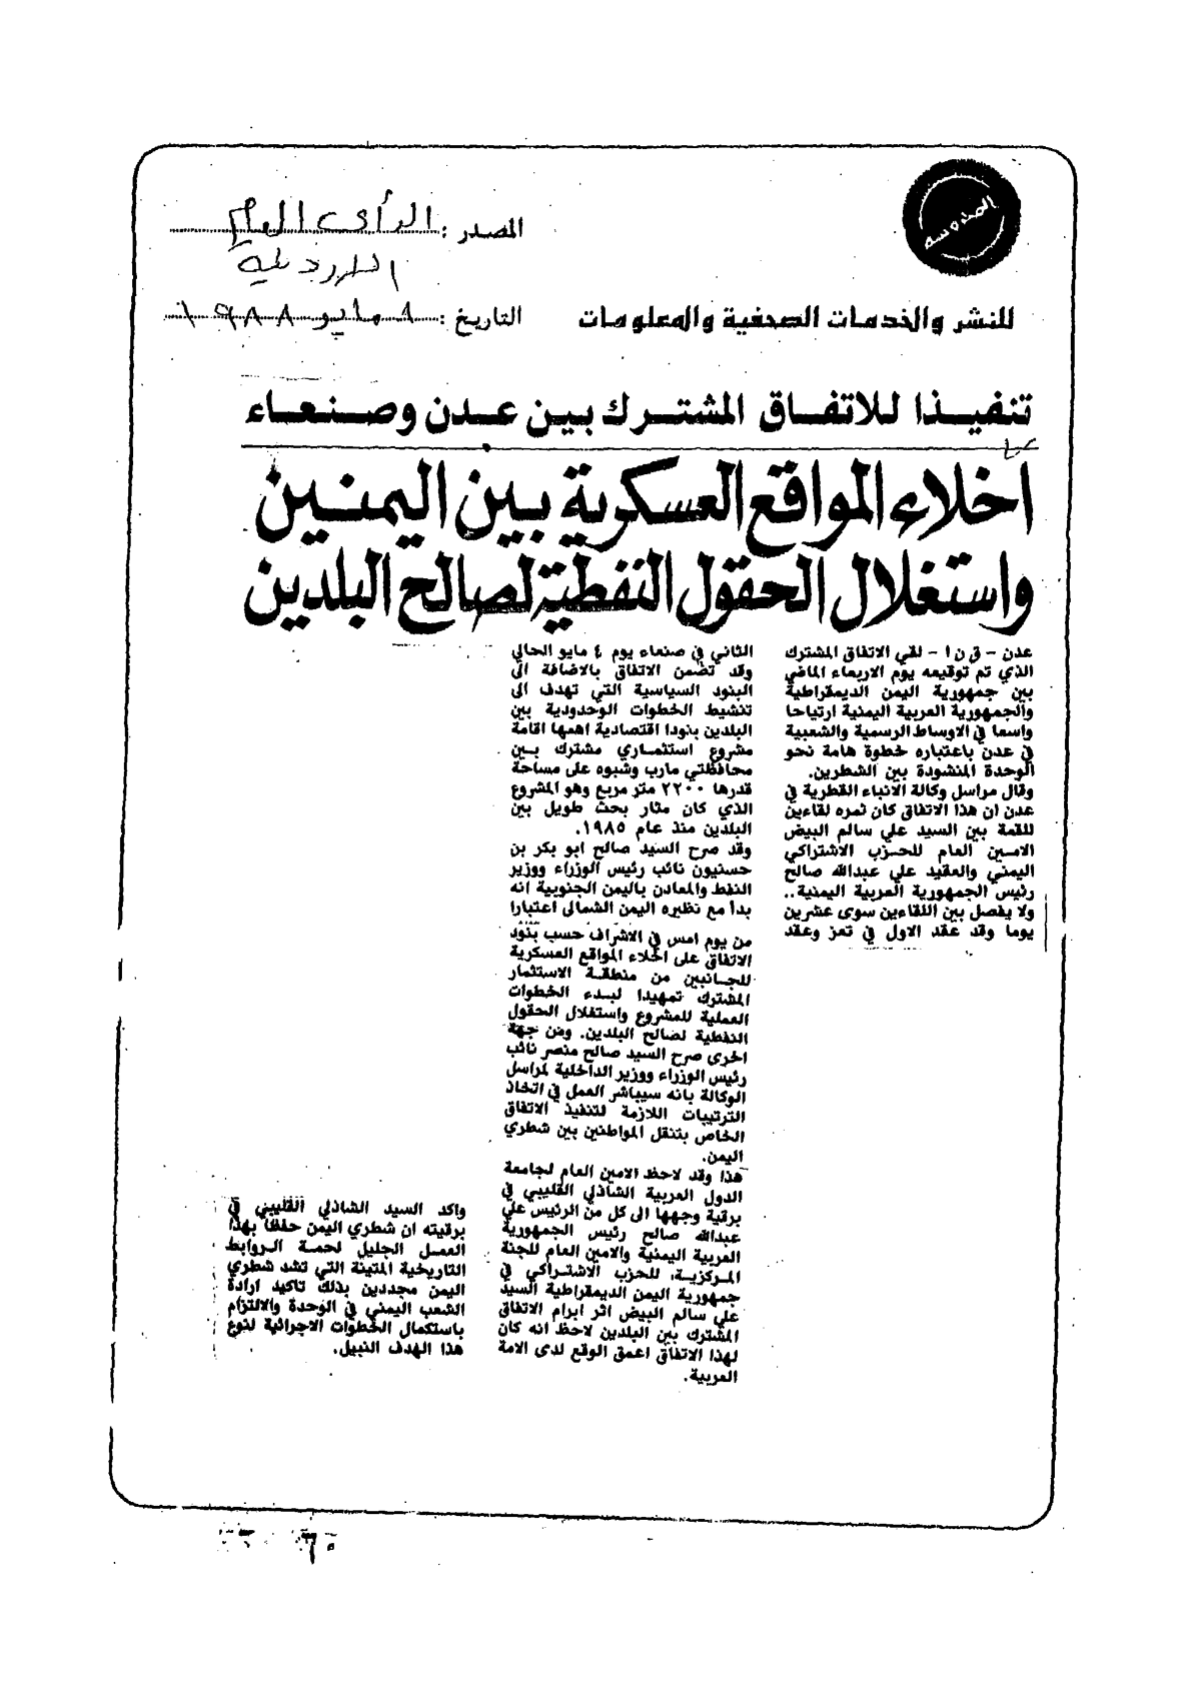 المصدر : الرأي العام
الاردنية
التاريخ : ٨ مايو ١٩٨٨
للنشر والخدمات الصحفية والمعلومات
تنفيذا للاتفاق المشترك بين عدن وصنعاء
اخلاء المواقع العسكرية بين اليمنين
واستغلال الحقول النفطية لصالح البلدين
عدن – ق ن ا – لقي الاتفاق المشترك
الذي تم توقيعه يوم الاربعاء الماضي
بين جمهورية اليمن الديمقراطية
والجمهورية العربية اليمنية ارتياحا
واسعا في الاوساط الرسمية والشعبية
في عدن باعتباره خطوة هامة نحو
الوحدة المنشودة بين الشطرين.
وقال مراسل وكالة الانباء القطرية في
عدن ان هذا الاتفاق كان ثمره لقاءين
للقمة بين السيد علي سالم البيض
الامين العام للحزب الاشتراكي
اليمني والعقيد علي عبدالله صالح
رئيس الجمهورية العربية اليمنية..
ولا يفصل بين اللقاءين سوى عشرين
يوما وقد عقد الاول في تعز وعقد
الثاني في صنعاء يوم ٤ مايو الحالي
وقد تضمن الاتفاق بالاضافة الى
البنود السياسية التي تهدف الى
تنشيط الخطوات الوحدودية بين
البلدين بنودا اقتصادية اهمها اقامة
مشروع استثماري مشترك بين
محافظتي مارب وشبوه على مساحة
قدرها ٢٢٠٠ متر مربع وهو المشروع
الذي كان مثار بحث طويل بين
البلدين منذ عام ١٩٨٥.
وقد صرح السيد صالح ابو بكر بن
حسنيون نائب رئيس الوزراء ووزير
النفط والمعادن باليمن الجنوبية انه
بدأ مع نظيره اليمن الشمالى اعتبارا
من يوم امس في الاشراف حسب بنود
الاتفاق على اخلاء المواقع العسكرية
للجانبين من منطقة الاستثمار
المشترك تمهيدا لبدء الخطوات
العملية للمشروع واستغلال الحقول
النفطية لصالح البلدين. ومن جهة
اخرى صرح السيد صالح منصر نائب
رئيس الوزراء ووزير الداخلية لمراسل
الوكالة بانه سيباشر العمل في اتخاذ
الترتيبات اللازمة لتنفيذ الاتفاق
الخاص بتنقل المواطنين بين شطري
اليمن.
هذا وقد لاحظ الامين العام لجامعة
الدول العربية الشاذلي القليبي في
برقية وجهها الى كل من الرئيس علي
عبدالله صالح رئيس الجمهورية
العربية اليمنية والامين العام للجنة
المركزية للحزب الاشتراكي في
جمهورية اليمن الديمقراطية السيد
علي سالم البيض اثر ابرام الاتفاق
المشترك بين البلدين لاحظ انه كان
لهذا الاتفاق اعمق الوقع لدى الامة
العربية.
واكد السيد الشاذلي القليبي في
برقيته ان شطري اليمن حفظا بهذا
العمل الجليل لحمة الروابط
التاريخية المتينة التي تشد شطري
اليمن مجددين بذلك تاكيد ارادة
الشعب اليمني في الوحدة والالتزام
باستكمال الخطوات الاجرائية لنوع
هذا الهدف النبيل.